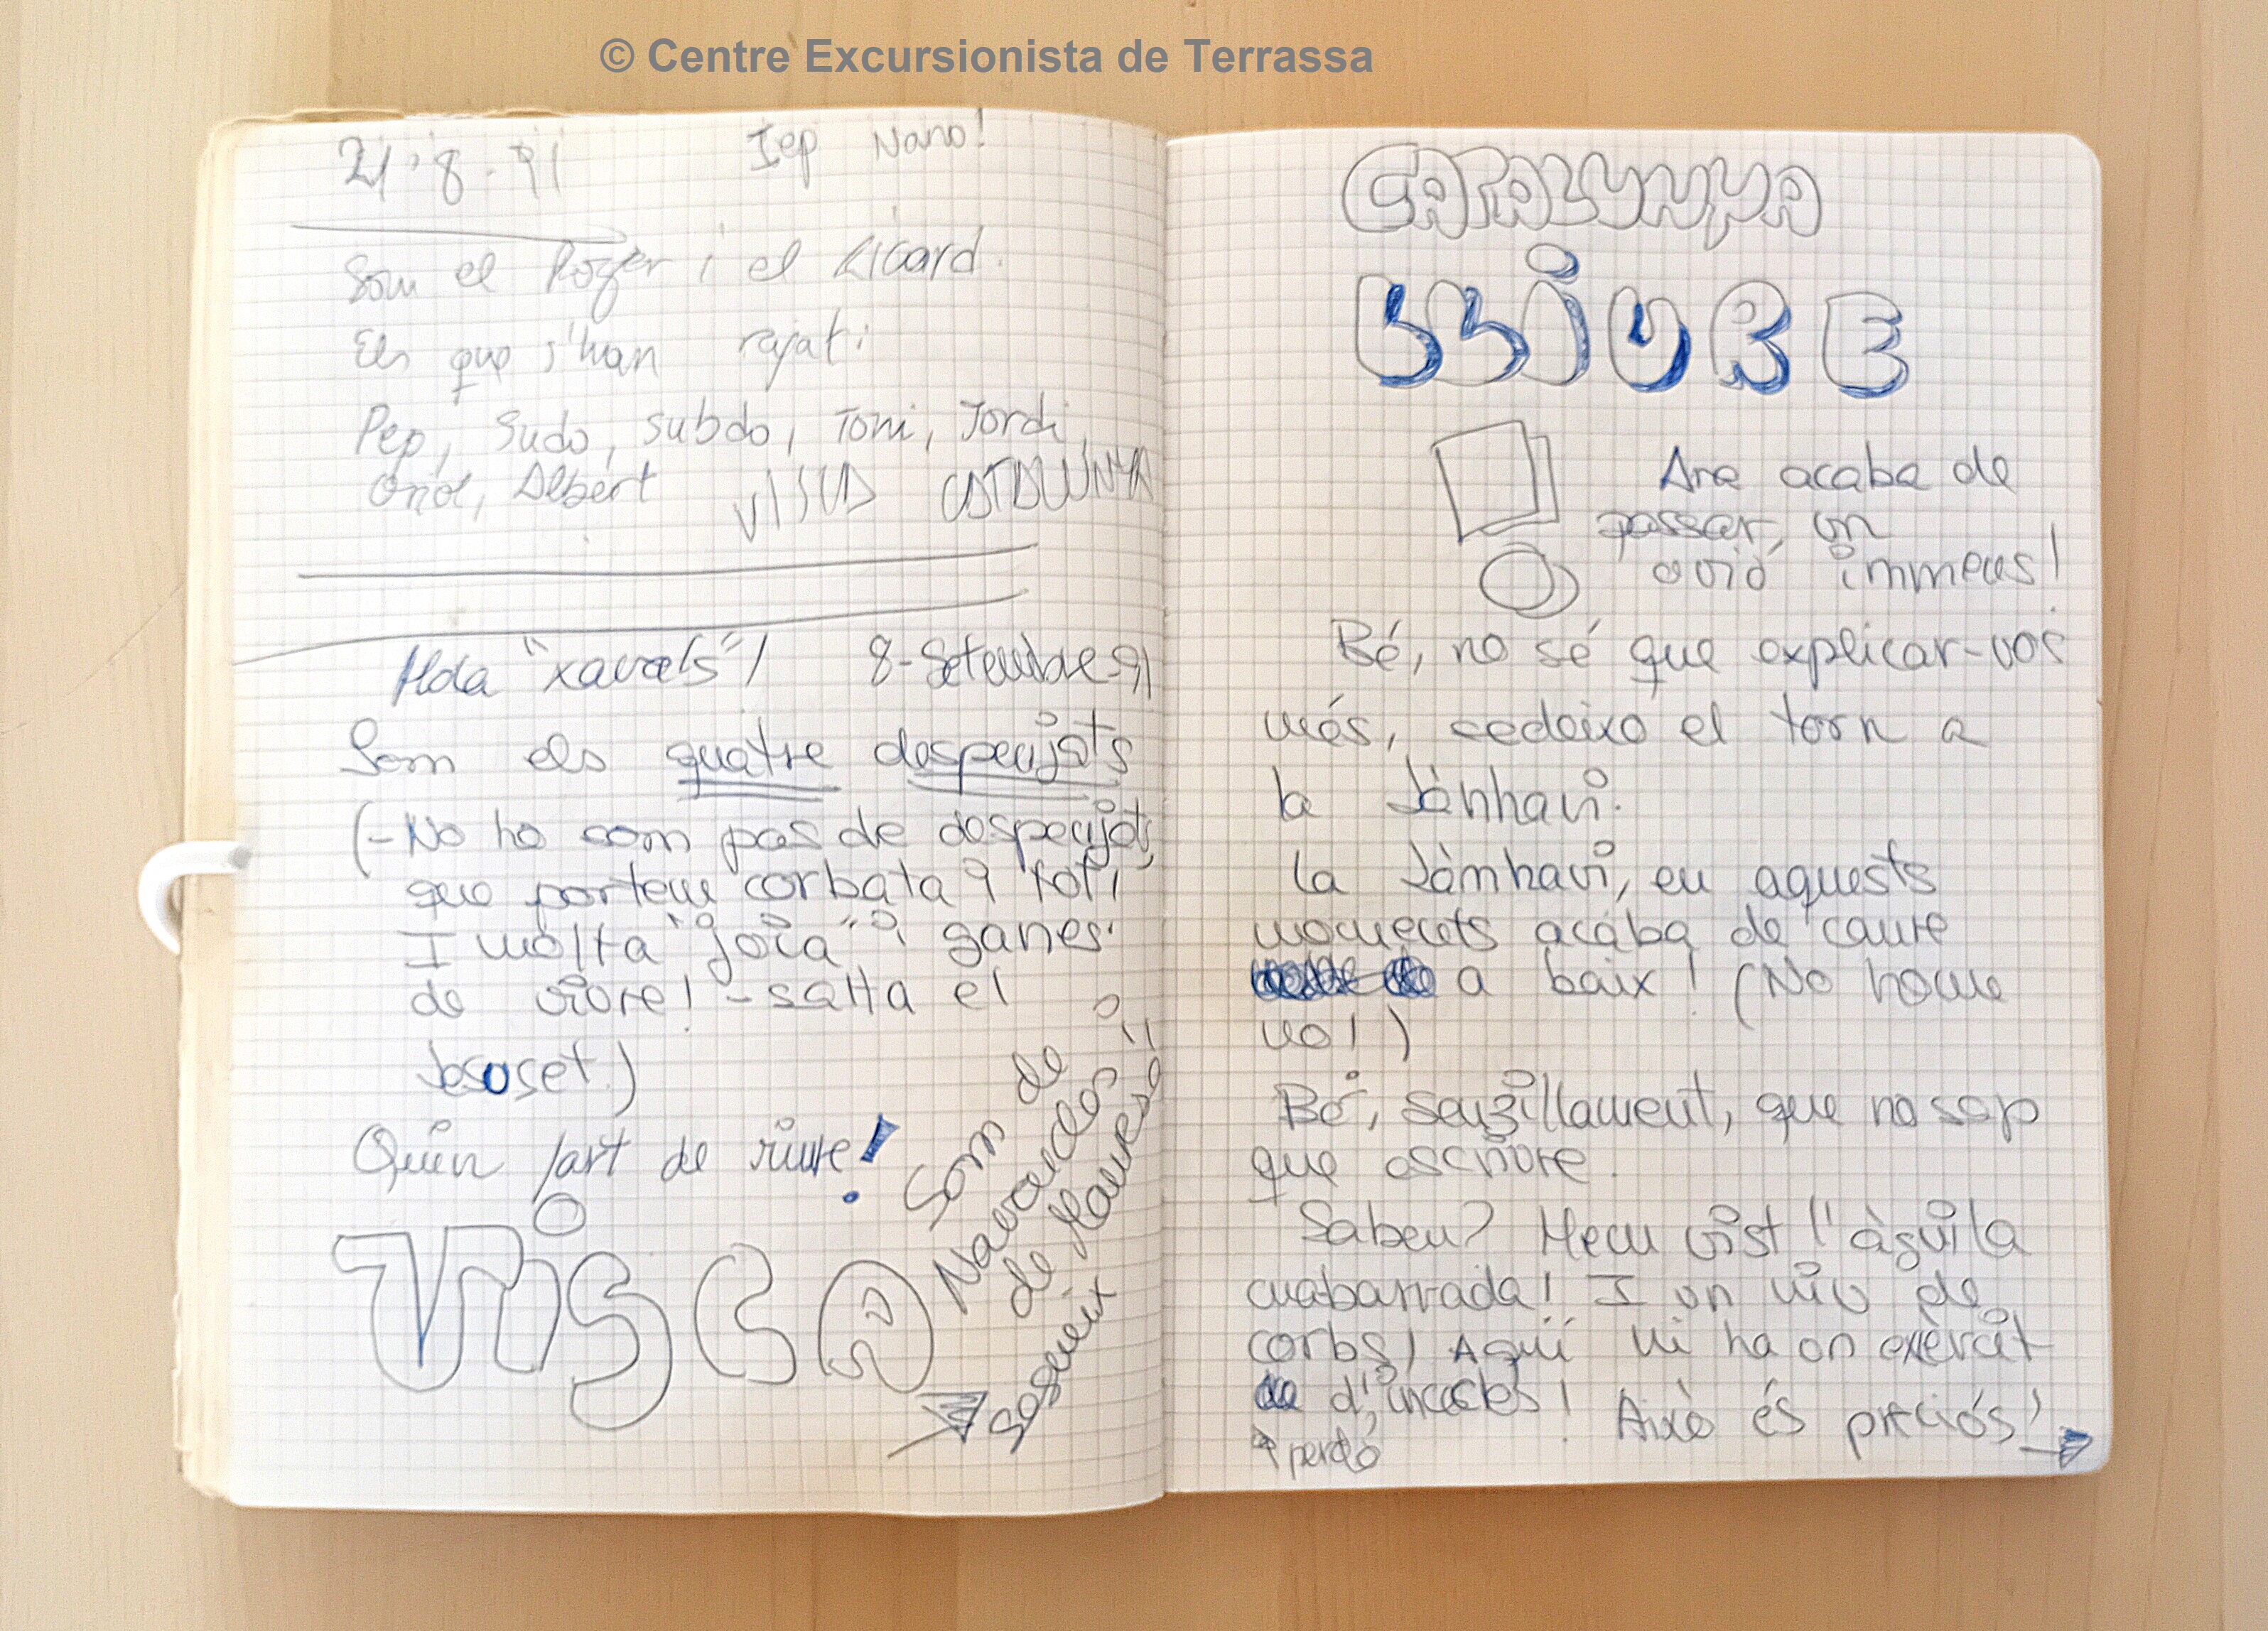 © Centre Excursionista de Terrassa
21·8-91 Iep Nano!
Som el Roger i el Ricard.
Els que s'han rajat:
Pep, Sudo, subdo, Toni, Jordi,
Oriol, Albert VISCA CATALUNYA
Hola "xavals"! 8-Setembre-91
Som els quatre despenjats
(-No ho som pas de despenjats,
que portem corbata i tot!,
I molta "joia" i ganes
de viure! -salta el
Jesuset.)
Quin fart de riure!
VISCA
Som de
Navarcles i
de Manresa!!
Segueix
CATALUNYA
LLIURE
Ara acaba de
passar, un
avió immens!
Bé, no sé que explicar-vos
més, cedeixo el torn a
la Jànhavi.
la Jànhavi, en aquests
moments acaba de caure
a baix! (No home
no!)
Bé, senzillament, que no sap
que escriure.
Sabeu? Hem vist l'àguila
cuabarrada! I un niu de
corbs! Aquí hi ha un exèrcit
d'insectes! Això és preciós!
perdó